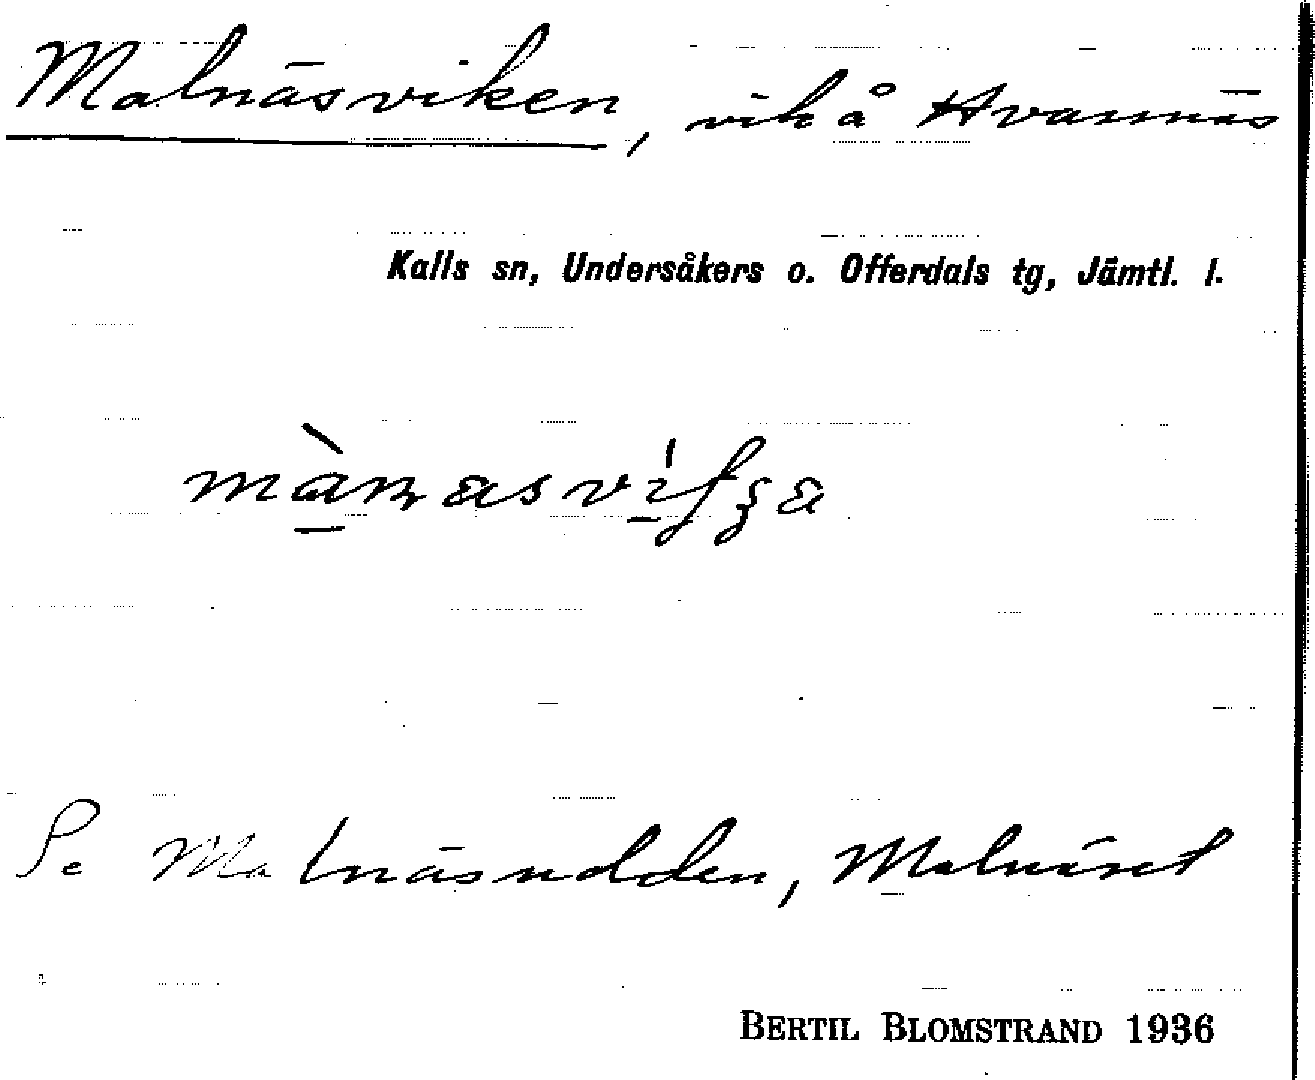 Malnäsviken, vik å Hvarnäs
Kalls sn, Undersåkers o. Offerdals tg, Jämtl. l.
Se Malnäsudden, Malnäset
BERTIL BLOMSTRAND 1936